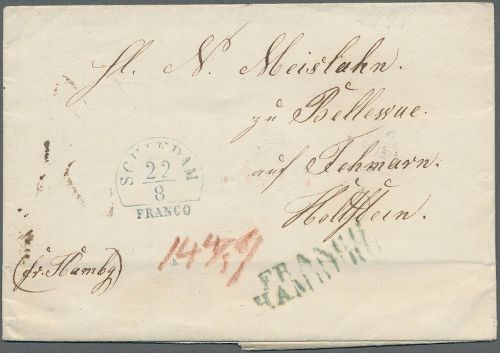 Hl. N. Meislahn.
zu Bellevue.
auf Fehmarn.
Hollstein.
SCHIEDAM
22
8
FRANCO
(fr. Hambg)
FRANCO
HAMBURG